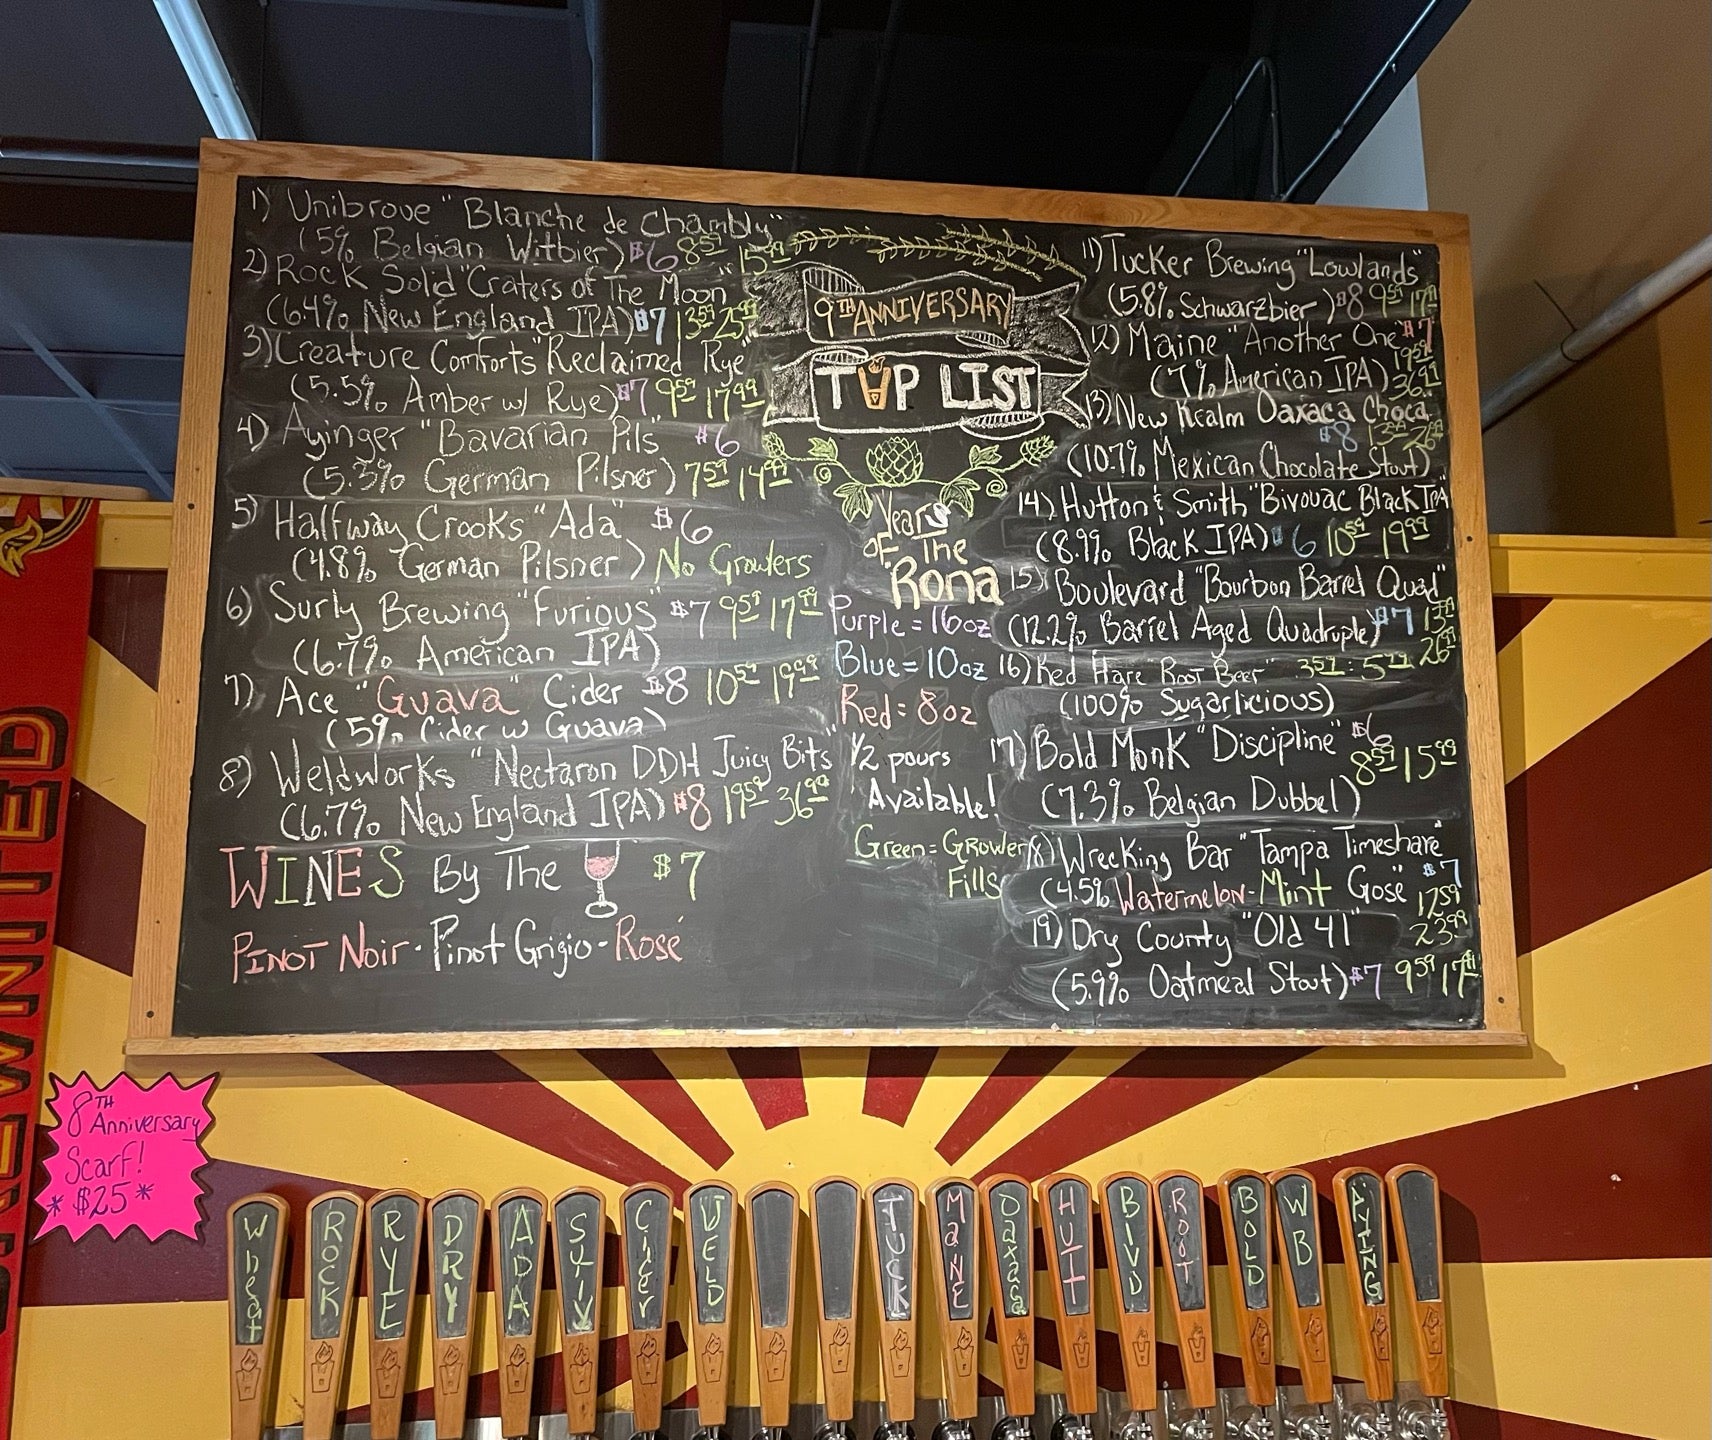 1) Unibroue "Blanche de Chambly"
(5% Belgian Witbier) $6 8.59 15.99
2) Rock Solid "Craters of The Moon"
(6.4% New England IPA) $7 13.59 25.99
3) Creature Comforts "Reclaimed Rye"
(5.5% Amber w/ Rye) $7 9.59 17.99
4) Ayinger "Bavarian Pils" $6
(5.3% German Pilsner) 7.59 14.99
5) Halfway Crooks "Ada" $6
(4.8% German Pilsner) No Growlers
6) Surly Brewing "Furious" $7 9.59 17.99
(6.7% American IPA)
7) Ace "Guava" Cider $8 10.59 19.99
(5% Cider w Guava)
8) Weldworks "Nectaron DDH Juicy Bits"
(6.7% New England IPA) $8 19.59 36.99
WINES By The $7
Pinot Noir · Pinot Grigio - Rosé
9TH ANNIVERSARY
TAP LIST
Years
of The
Rona
Purple = 16oz
Blue = 10oz
Red = 8oz
1/2 pours
Available!
Green = Growler
Fills
11) Tucker Brewing "Lowlands"
(5.8% Schwarzbier) $8 9.59 17.99
12) Maine "Another One" $7
(7% American IPA) 19.59 36.99
13) New Realm Oaxaca Choca
$8 13.59 26.99
(10.7% Mexican Chocolate Stout)
14) Hutton & Smith "Bivouac Black IPA"
(8.9% Black IPA) $6 10.59 19.99
15) Boulevard "Bourbon Barrel Quad"
(12.2% Barrel Aged Quadruple) $7 13.59 26.99
16) Red Hare "Root Beer" 3.59 : 5.99
(100% Sugarlicious)
17) Bold Monk "Discipline" $6
8.59 15.99
(7.3% Belgian Dubbel)
18) Wrecking Bar "Tampa Timeshare"
(4.5% Watermelon-Mint Gose" $7 12.59
23.99
19) Dry County "Old 41"
(5.9% Oatmeal Stout) $7 9.59 17.99
8TH
Anniversary
Scarf!
* $25 *
Wheat
ROCK
RYE
DRY
ADA
Cider
WELD
TUCK
MaiNE
Oaxaca
HUTT
BLVD
ROOT
BOLD
WB
AYING